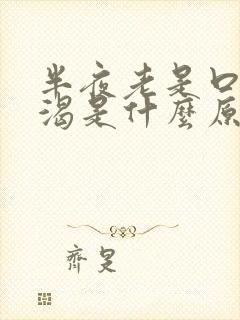 半夜老是口
渴是什麼原
齊是